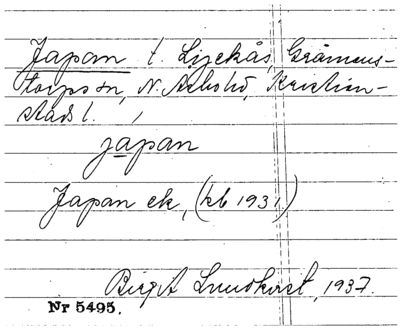 Japan t. Ljyekås, Gråmans-
torps sn, N. Åsbo hd, Kristian-
stads l.
japan
Japan ek, (kb 1931)
Birgit Lundkvist, 1937.
Nr 5495.